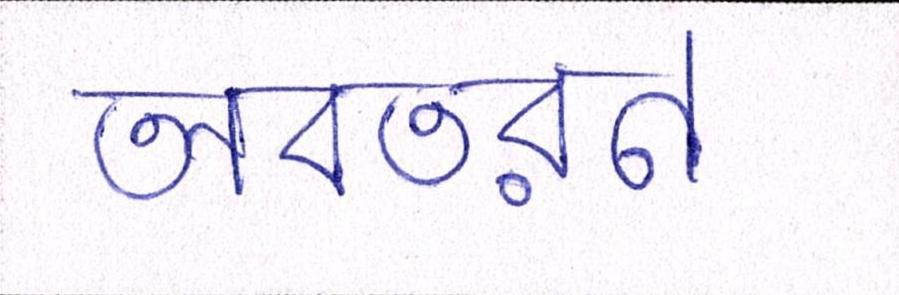 অবতরণ